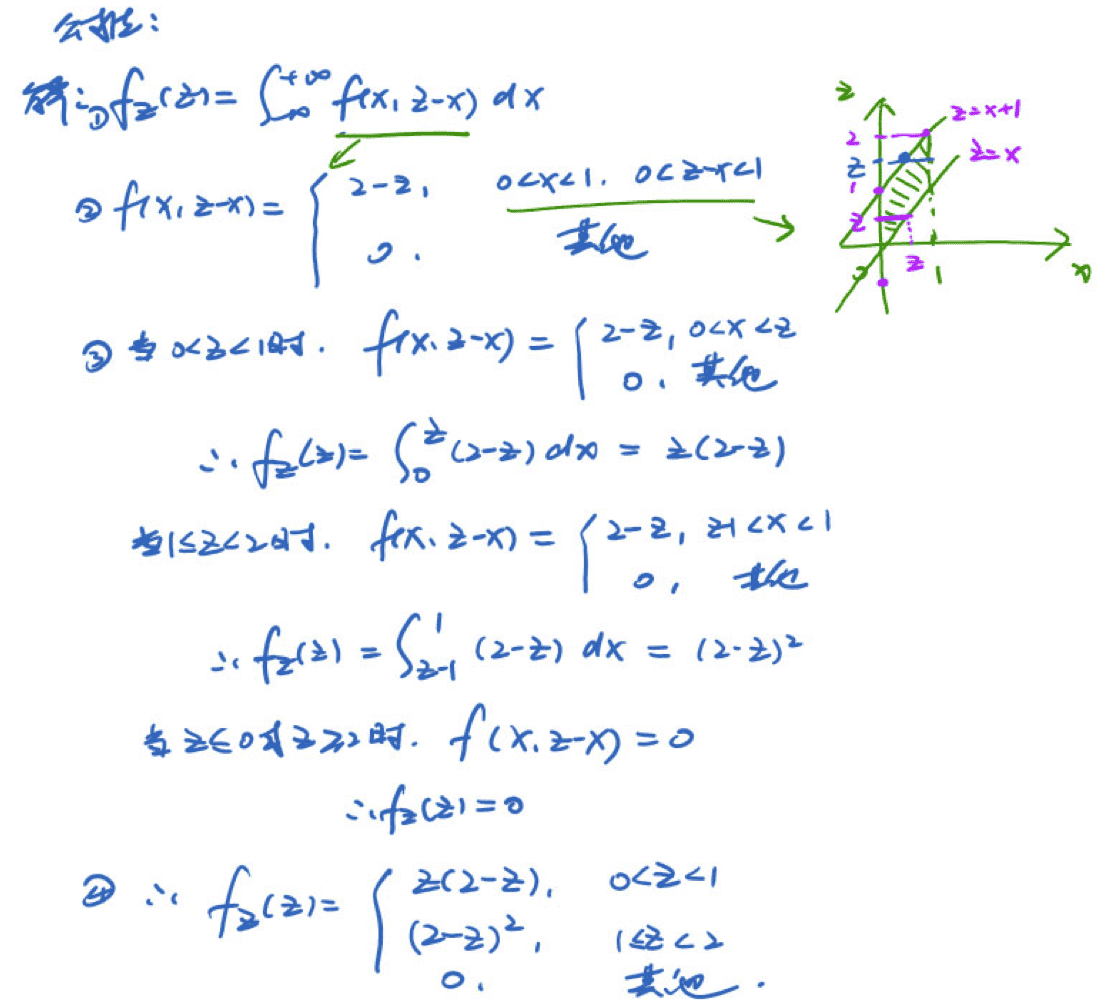 公式法:
解:① f_Z(z)= ∫_{-∞}^{+∞} f(x, z-x) dx
② f(x, z-x)= { 2-z, 0<x<1, 0<z-x<1
0, 其他
③ 当0<z<1时, f(x, z-x) = { 2-z, 0<x<z
0, 其他
∴ f_Z(z)= ∫_0^z (2-z) dx = z(2-z)
当1≤z<2时, f(x, z-x) = { 2-z, z-1<x<1
0, 其他
∴ f_Z(z) = ∫_{z-1}^1 (2-z) dx = (2-z)²
当 z≤0或z≥2时, f(x, z-x)=0
∴ f_Z(z)=0
④ ∴ f_Z(z)= { z(2-z), 0<z<1
(2-z)², 1≤z<2
0, 其他.
z
z=x+1
2
z=x
z
1
z
0
z
1
x